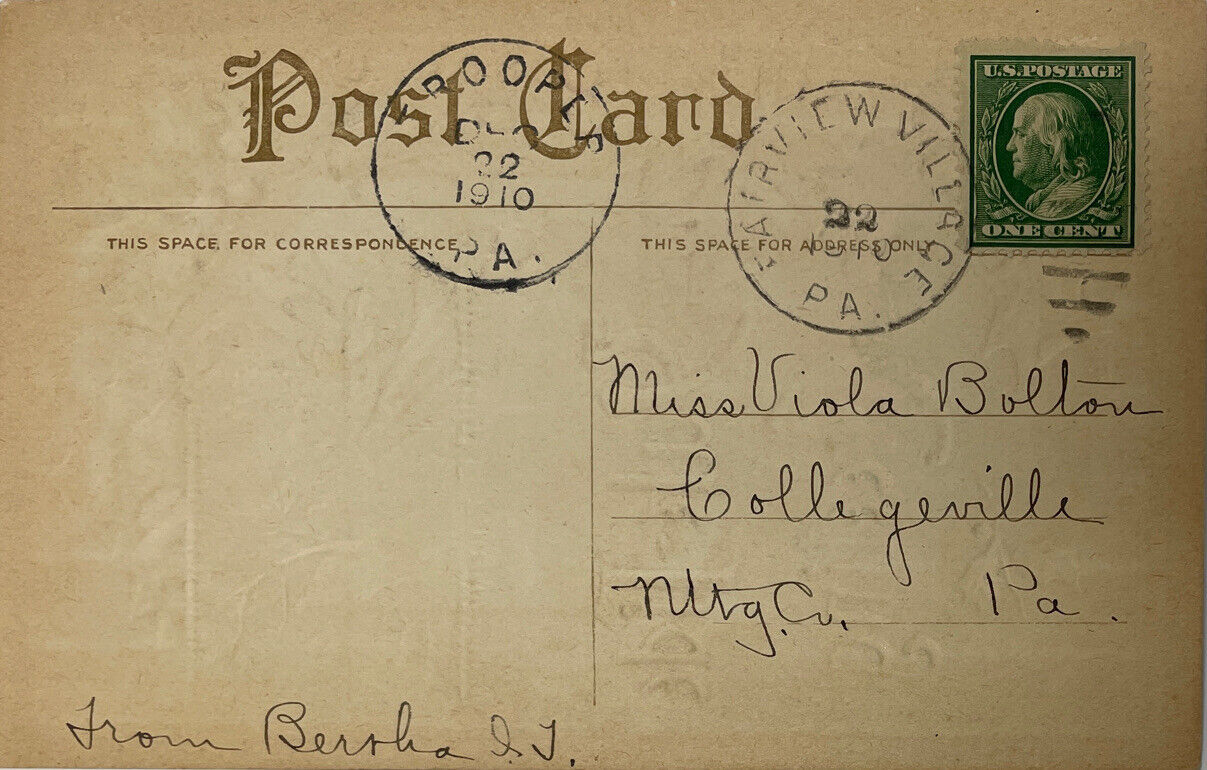 Post Card
TROOPER
DEC
22
1910
PA.
FAIRVIEW VILLAGE
22
1910
PA.
U.S. POSTAGE
ONE CENT
THIS SPACE FOR CORRESPONDENCE
THIS SPACE FOR ADDRESS ONLY
Miss Viola Bolton
Collegeville
Mtg. Co. Pa.
From Bertha